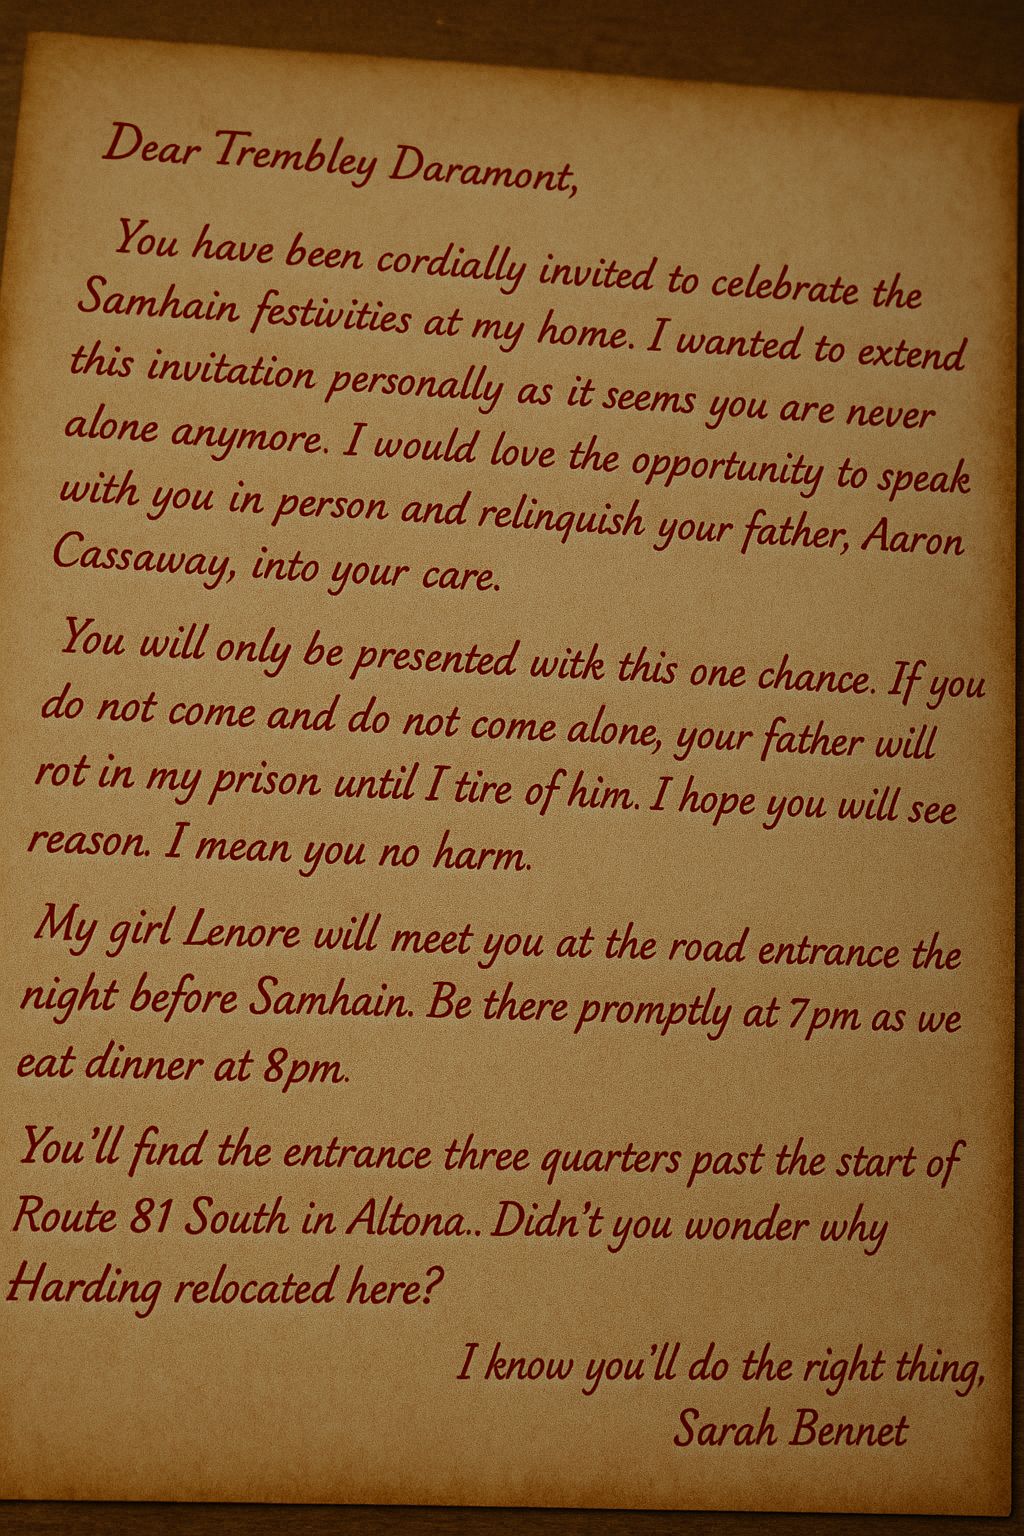 Dear Trembley Daramont,
You have been cordially invited to celebrate the
Samhain festivities at my home. I wanted to extend
this invitation personally as it seems you are never
alone anymore. I would love the opportunity to speak
with you in person and relinquish your father, Aaron
Cassaway, into your care.
You will only be presented with this one chance. If you
do not come and do not come alone, your father will
rot in my prison until I tire of him. I hope you will see
reason. I mean you no harm.
My girl Lenore will meet you at the road entrance the
night before Samhain. Be there promptly at 7pm as we
eat dinner at 8pm.
You'll find the entrance three quarters past the start of
Route 81 South in Altona.. Didn't you wonder why
Harding relocated here?
I know you'll do the right thing,
Sarah Bennet